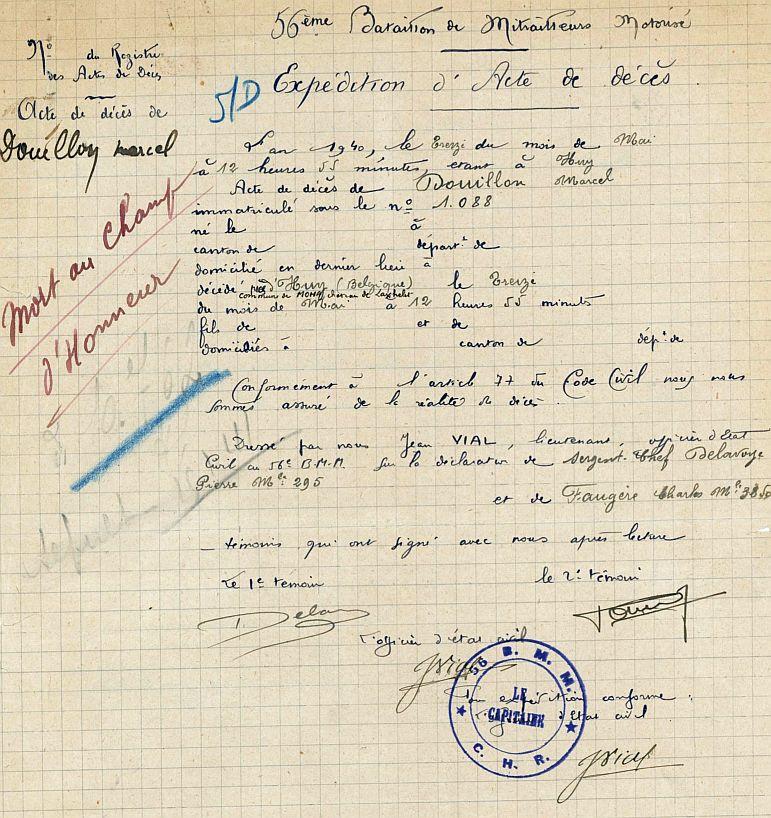 56ème Bataillon de Mitrailleurs Motorisé
No du Registre
des Actes de Décès
Acte de décès de
Douillon Marcel
5/D
Expédition d'Acte de décès
Mort au Champ
d'Honneur
L'an 1940, le Treize du mois de Mai
à 12 heures 55 minutes, étant à Huy
Acte de décès de Douillon Marcel
immatriculé sous le no 1.088
né le à
canton de départt de
domicilié en dernier lieu à
décédé près d'Huy (Belgique) le Treize
commune de MOHA
du mois de Mai à 12 heures 55 minuts
fils de et de
domiciliés à canton de dépt de
Conformément à l'article 77 du Code Civil nous nous
sommes assuré de la réalité du décès.
Dressé par nous Jean VIAL, lieutenant, officier d'Etat
Civil au 56e B.M.M. sur la déclaration de Sergent-Chef Delavoye
Pierre Mle 295
et de Faugère Charles Mle 3850
témoins qui ont signé avec nous après lecture
Le 1e témoin le 2e témoin
L'officier d'état civil
JVial
56 B. M. M.
LE
CAPITAINE
C. H. R.
Pour expédition conforme :
L'officier d'Etat civil
JVial